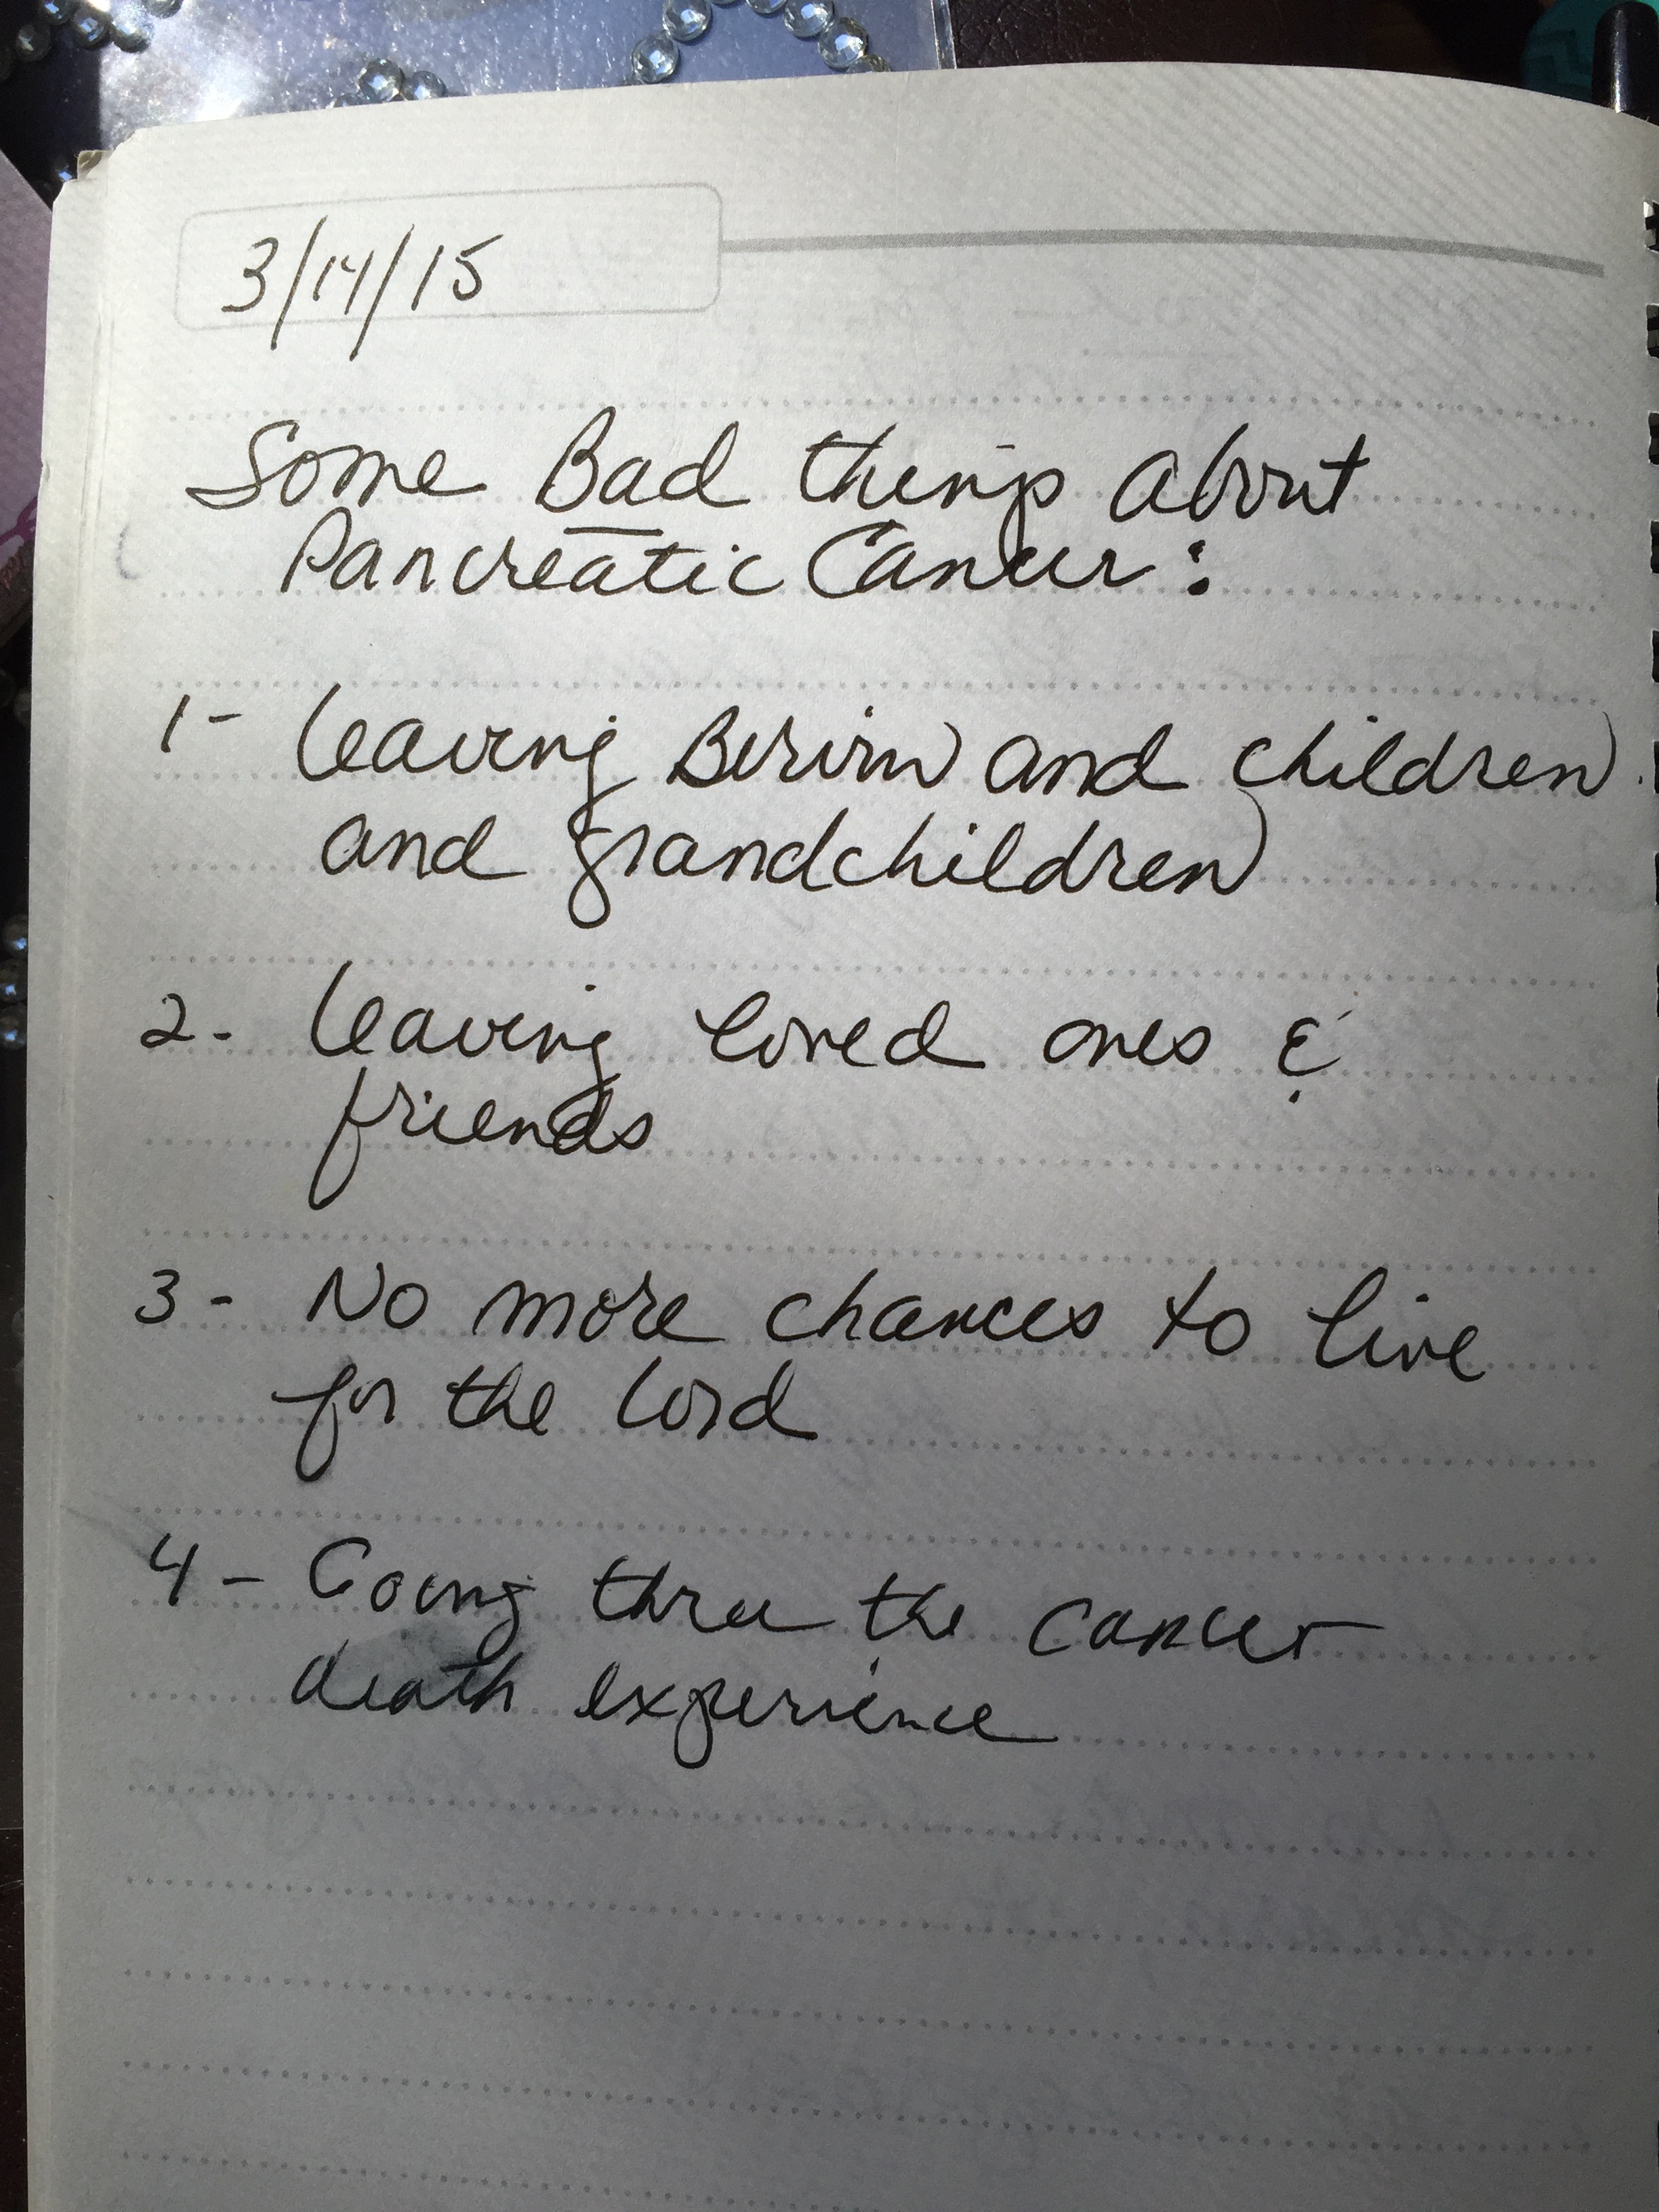 3/14/15
Some Bad things about
Pancreatic Cancer:
1- leaving and children
and grandchildren
2- leaving loved ones &
friends
3- No more chances to live
for the Lord
4- Going thru the cancer
death experience